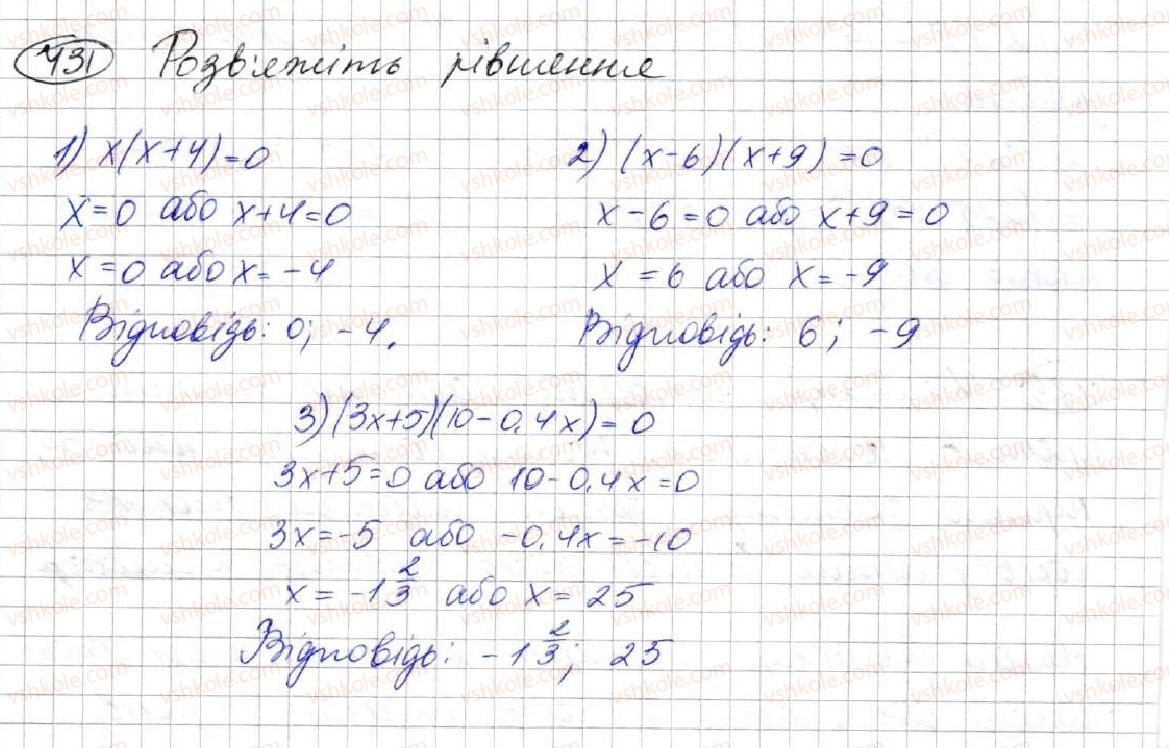 431 Розв'яжіть рівняння
1) x(x+4)=0
x=0 або x+4=0
x=0 або x=-4
Відповідь: 0; -4.
2) (x-6)(x+9)=0
x-6=0 або x+9=0
x=6 або x=-9
Відповідь: 6; -9
3) (3x+5)(10-0,4x)=0
3x+5=0 або 10-0,4x=0
3x=-5 або -0,4x=-10
x=-1 2/3 або x=25
Відповідь: -1 2/3; 25